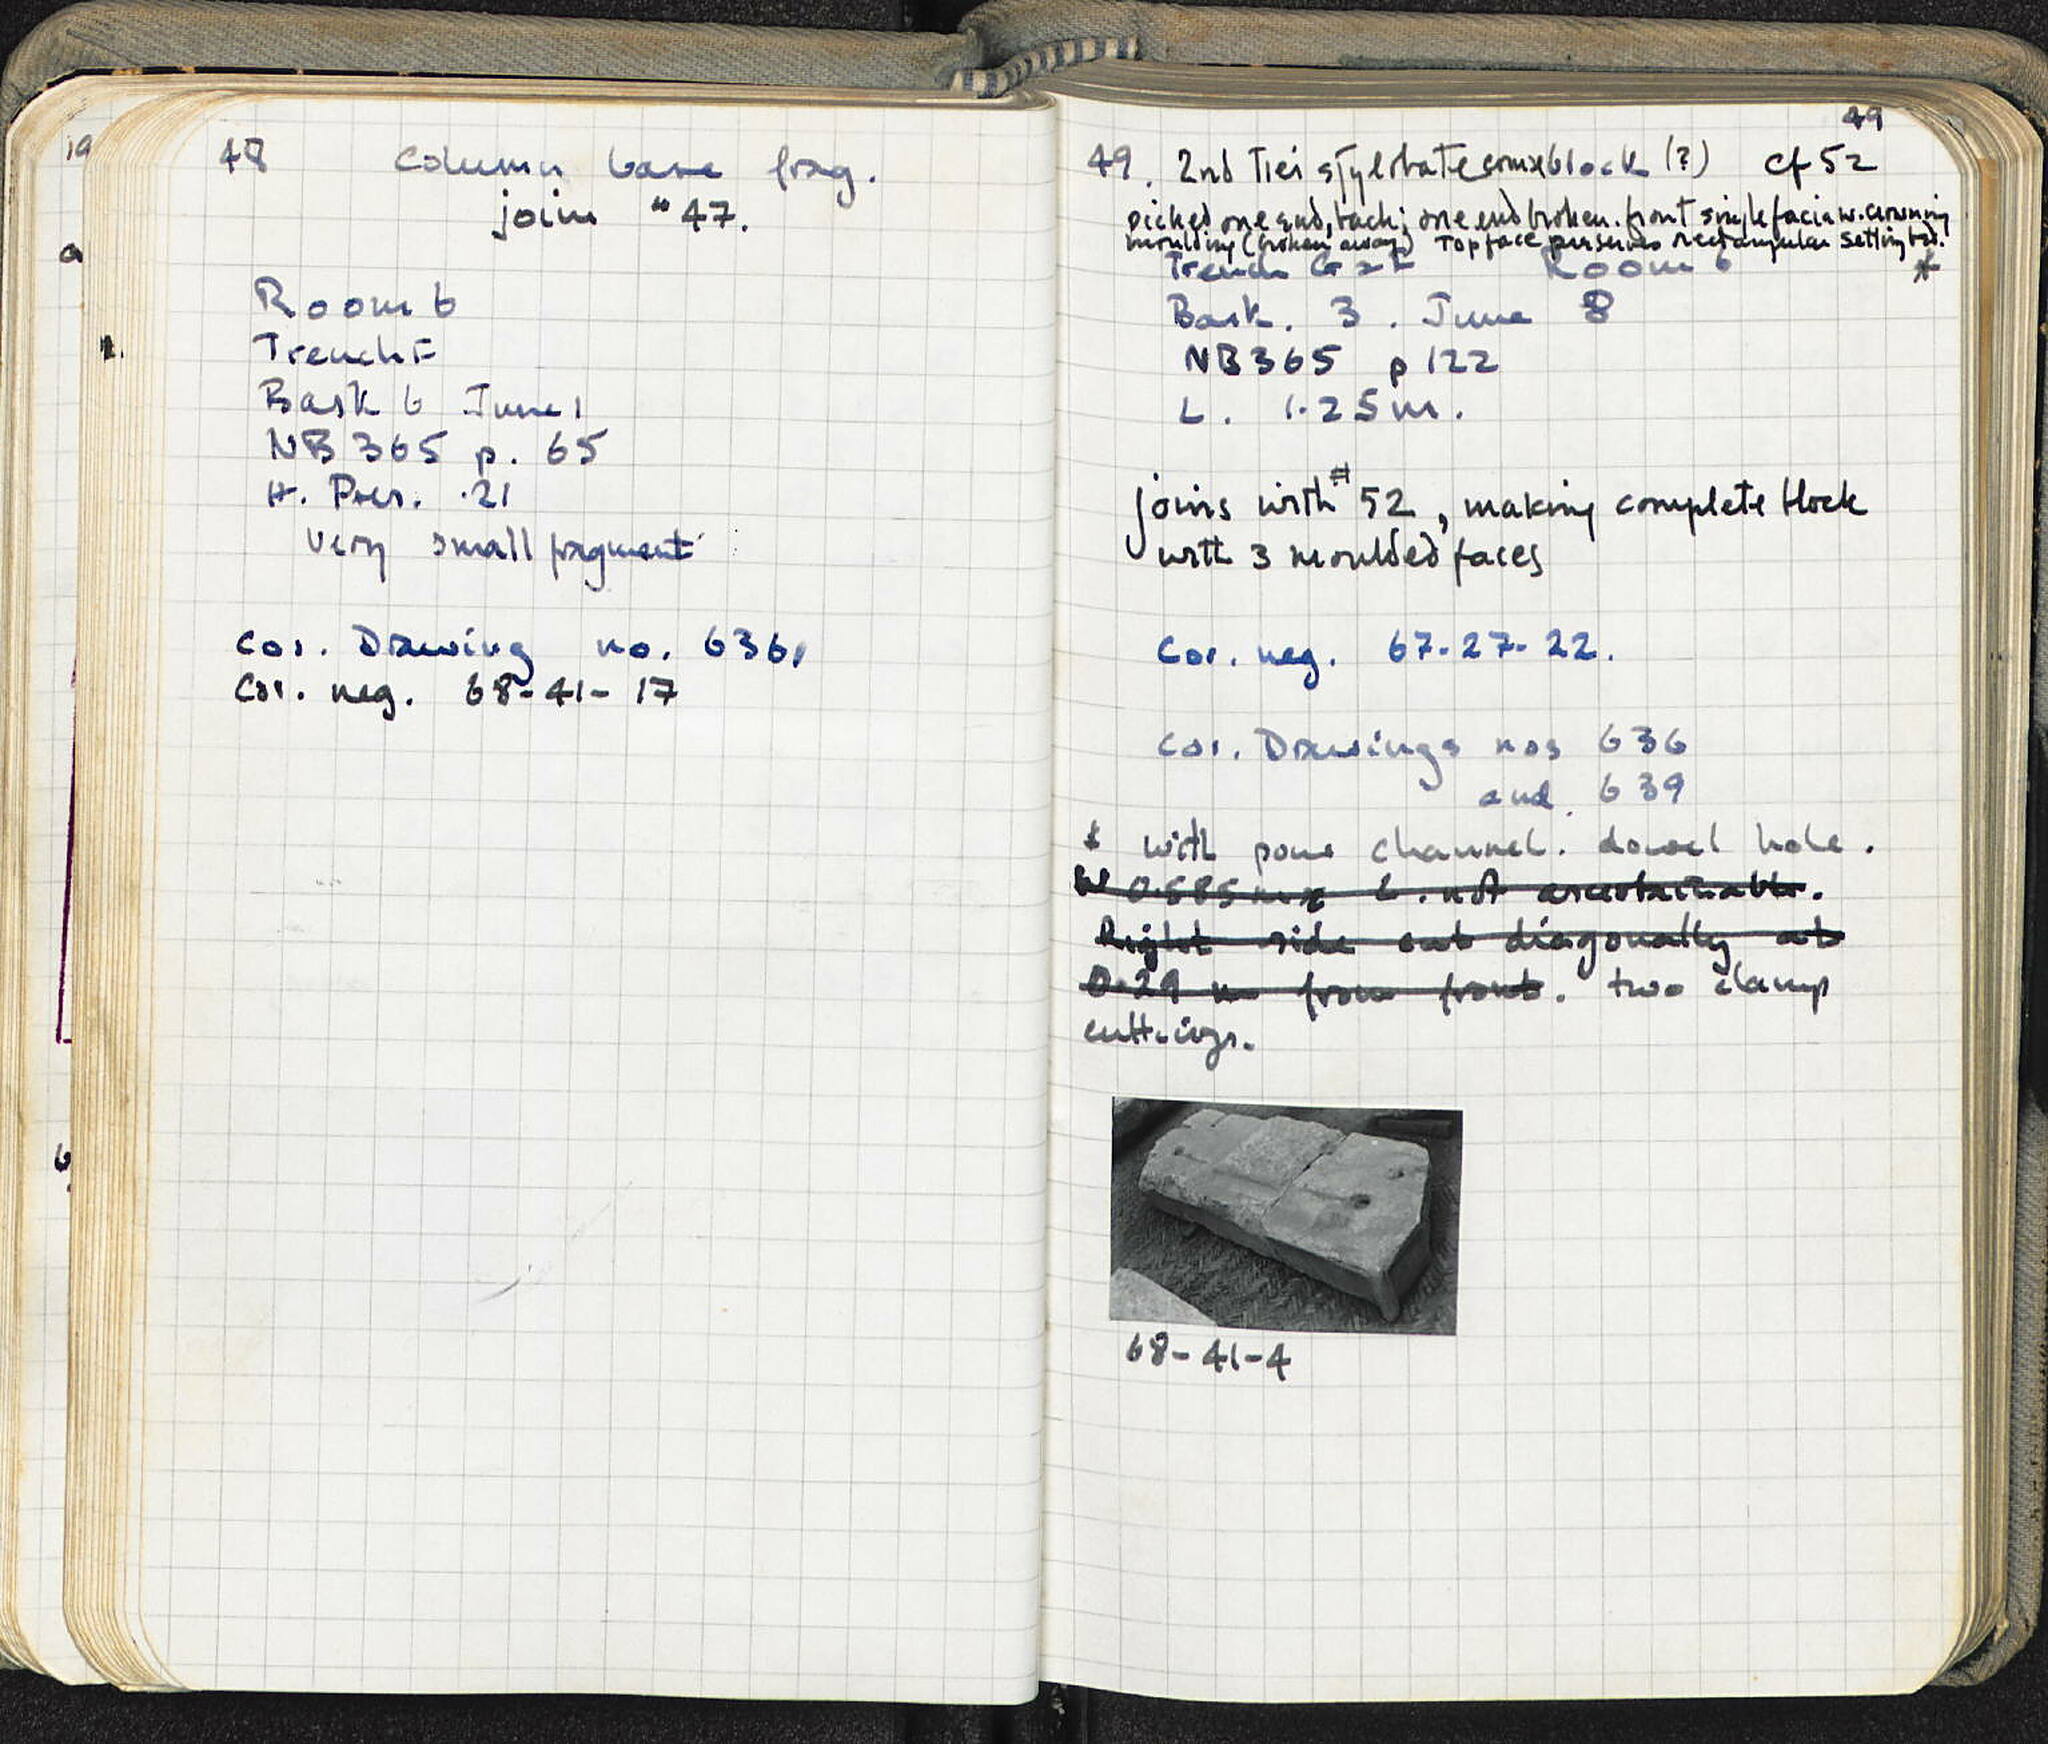 19
a
2.
6
48 Column base frag.
joins "47.
Room 6
Trench F
Bask 6 June 1
NB 365 p. 65
H. Pres. .21
Very small fragment
Cor. Drawing no. 636,
Cor. neg. 68-41-17
49
49. 2nd Tier stylobate block (?) cf 52
picked one end, back; one end broken. front single facia w. crowning
moulding (broken away) Top face preserves rectangular setting bed.
Trench G Room 6 *
Bask. 3. June 8
NB 365 p 122
L. 1.25 m.
joins with #52, making complete block
with 3 moulded faces
Cor. neg. 67-27-22.
Cor. Drawings nos 636
and 639
* with pour channel. dowel hole.
W 0.585 m x L. not ascertainable.
Right side cut diagonally at
0.29 m from front. two clamp
cuttings.
68-41-4